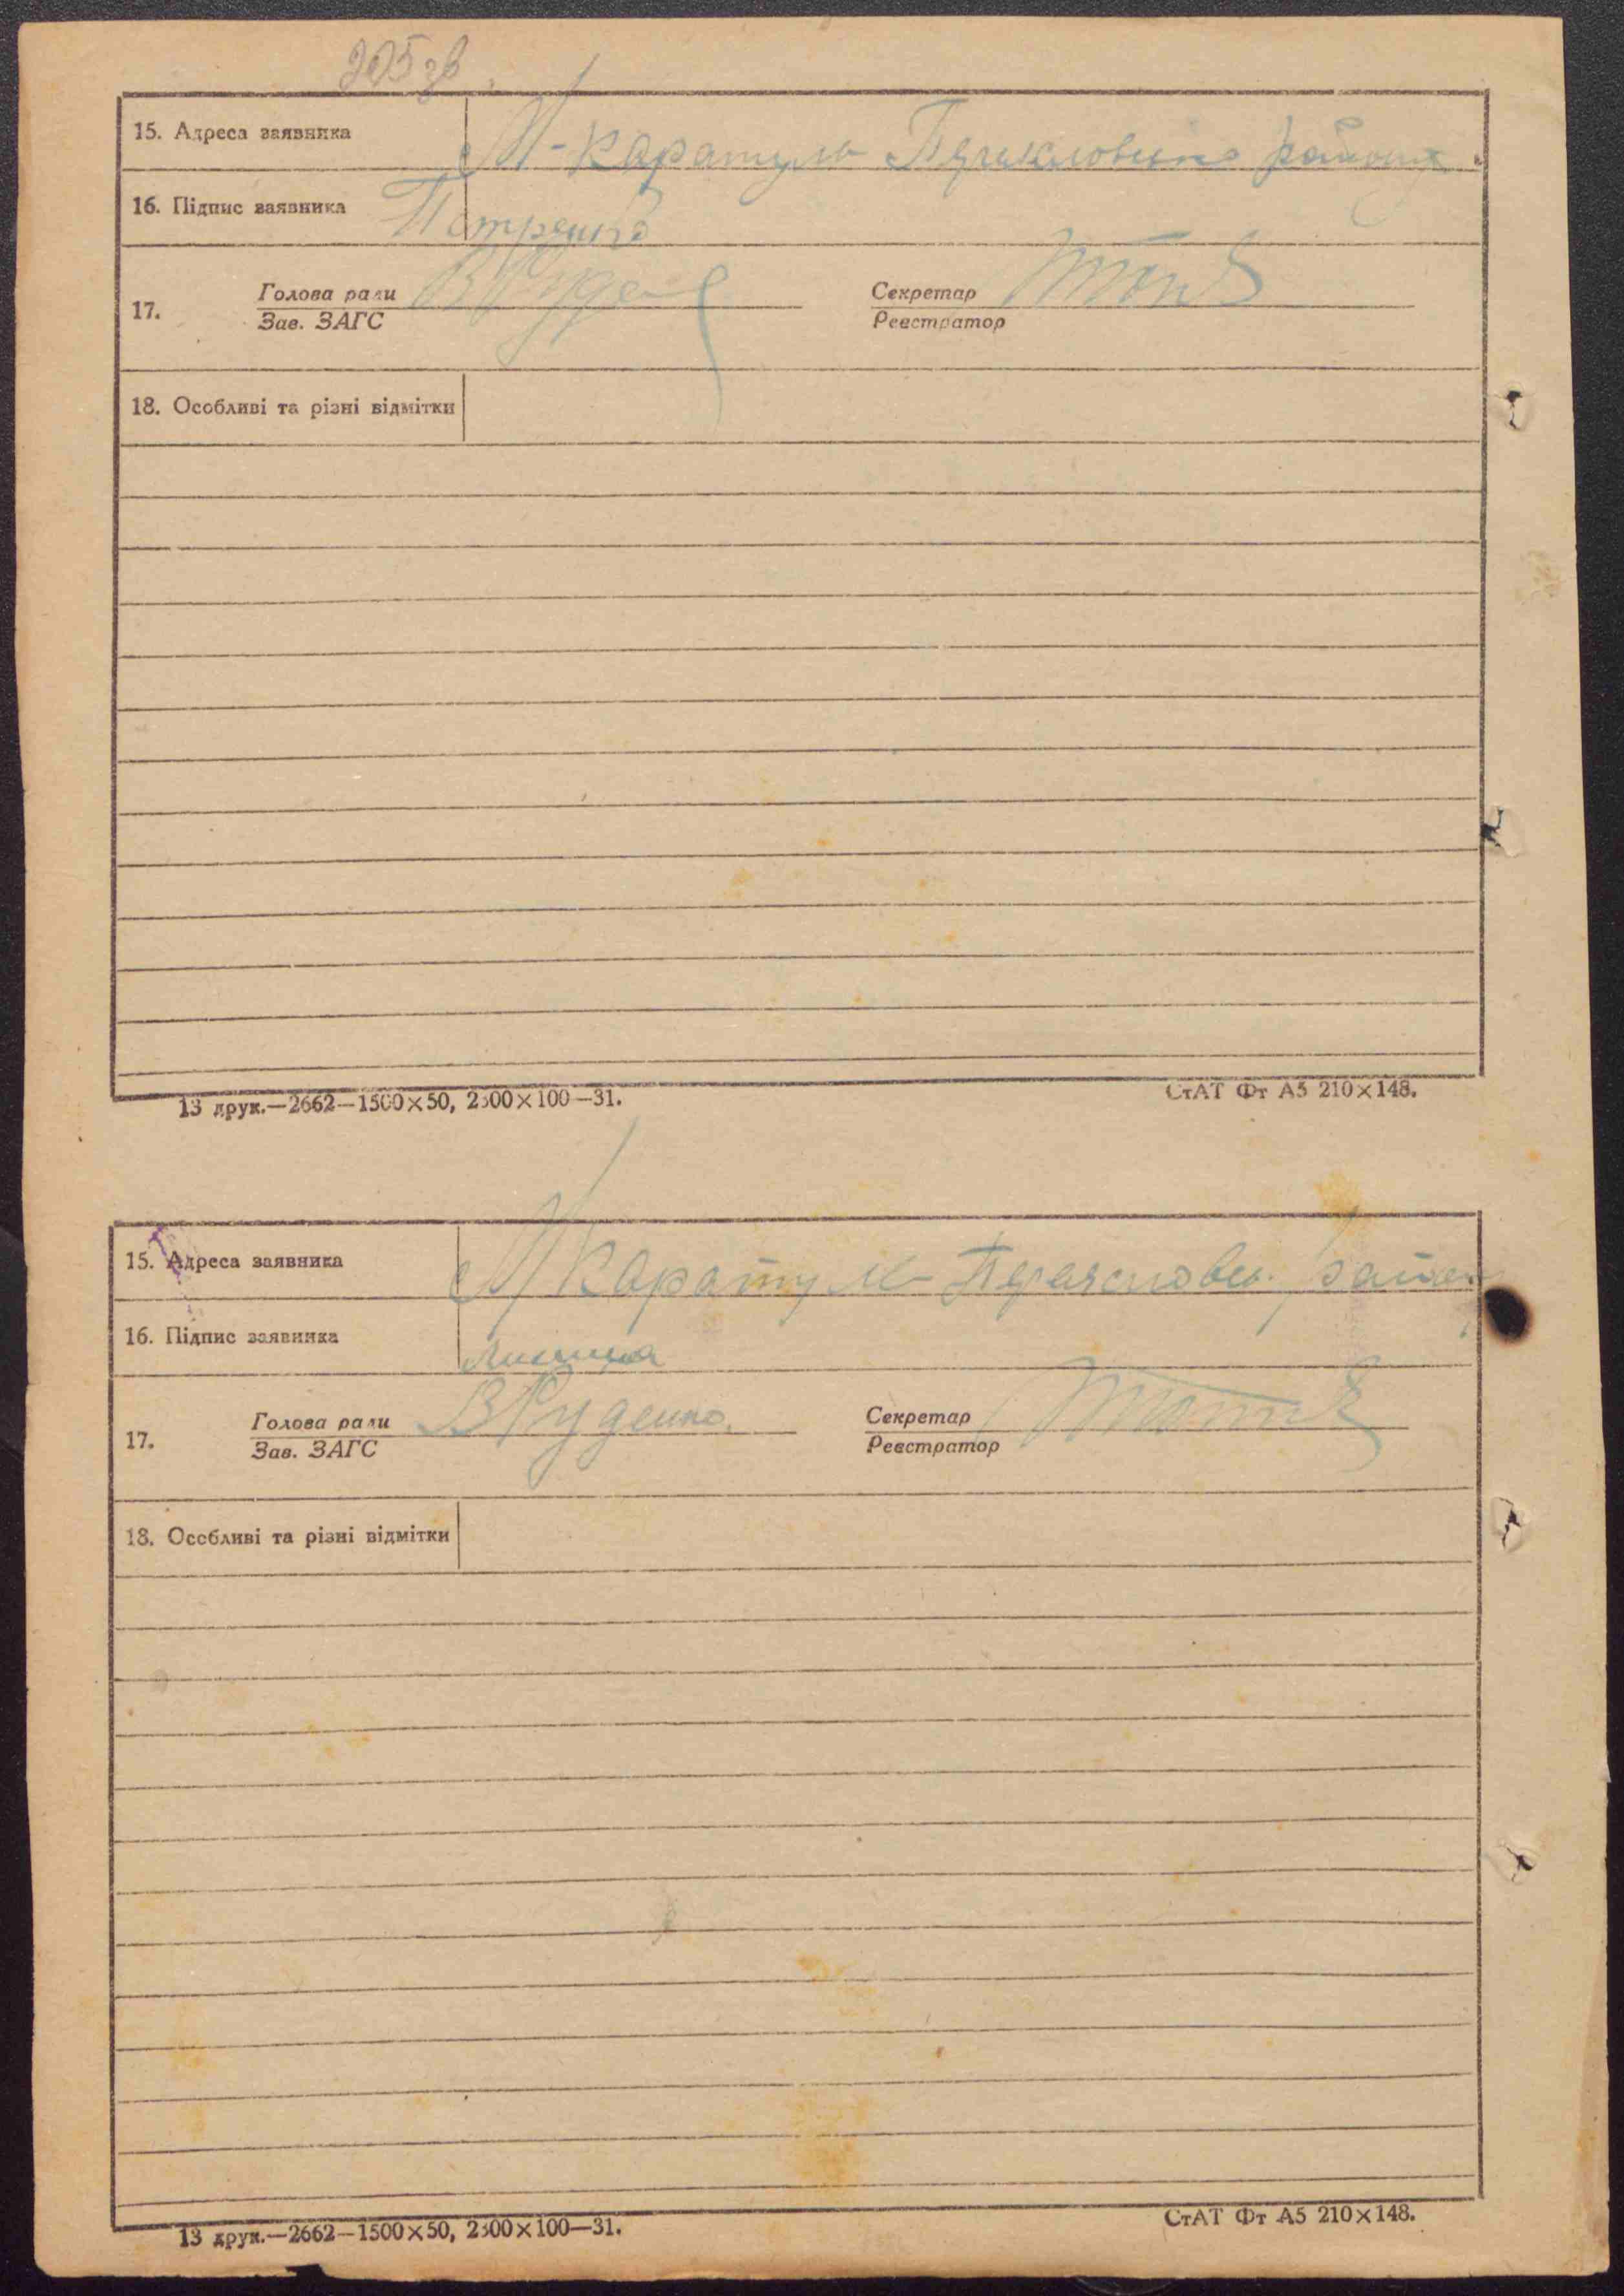 205 зв
15. Адреса заявника М-Каратуль Переяславськ району
16. Підпис заявника Петренко
Голова ради ВРуден Секретар
17.
Зав. ЗАГС Реєстратор
18. Особливі та різні відмітки
13 друк.—2662—1500×50, 2300×100—31. СтАТ Фт А5 210×148.
15. Адреса заявника М Каратуль Переясловсь. район
16. Підпис заявника
Голова ради ВРуденко. Секретар
17.
Зав. ЗАГС Реєстратор
18. Особливі та різні відмітки
13 друк.—2662—1500×50, 2300×100—31. СтАТ Фт А5 210×148.